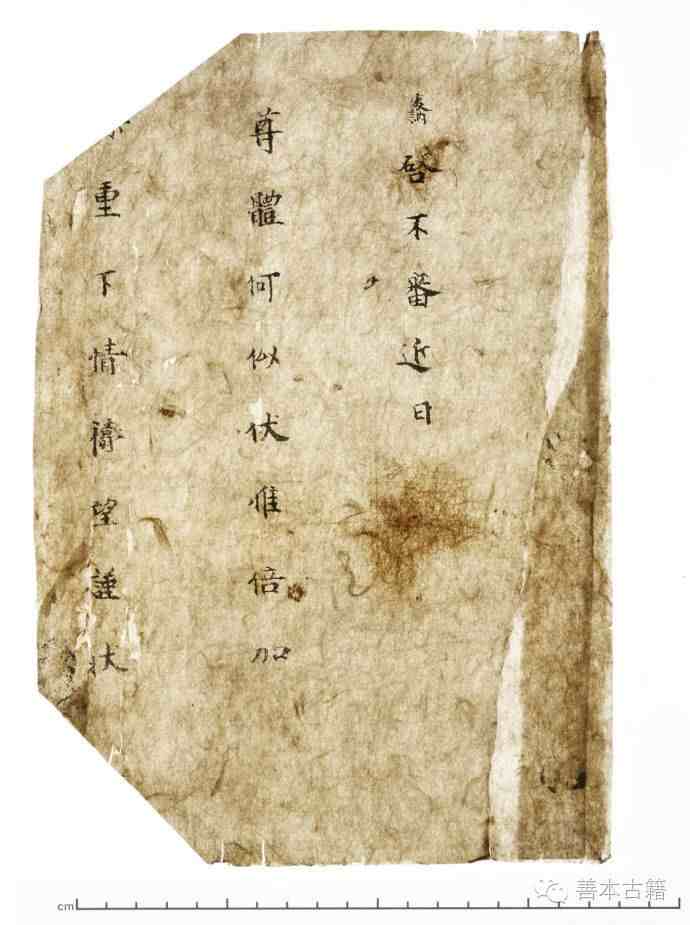 啓不審近日
尊體何似伏惟倍加
重下情禱望謹狀
cm
善本古籍